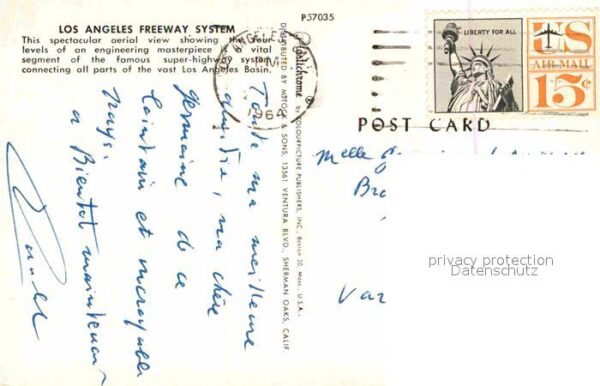 LOS ANGELES FREEWAY SYSTEM
This spectacular aerial view showing the four
levels of an engineering masterpiece is a vital
segment of the famous super-highway system
connecting all parts of the vast Los Angeles Basin.
P57035
Plastichrome ®
by COLOURPICTURE PUBLISHERS, INC., Boston 30, Mass., U.S.A.
DISTRIBUTED BY MITOCK & SONS, 13561 VENTURA BLVD., SHERMAN OAKS, CALIF.
LOS ANGELES
PM
196
LIBERTY FOR ALL
US
AIR MAIL
15¢
POST CARD
Toute ma meilleure
amitié, ma chère
germaine de ce
lointain et incroyable
pays.
a Bientot maintenant
Melle
Var
privacy protection
Datenschutz